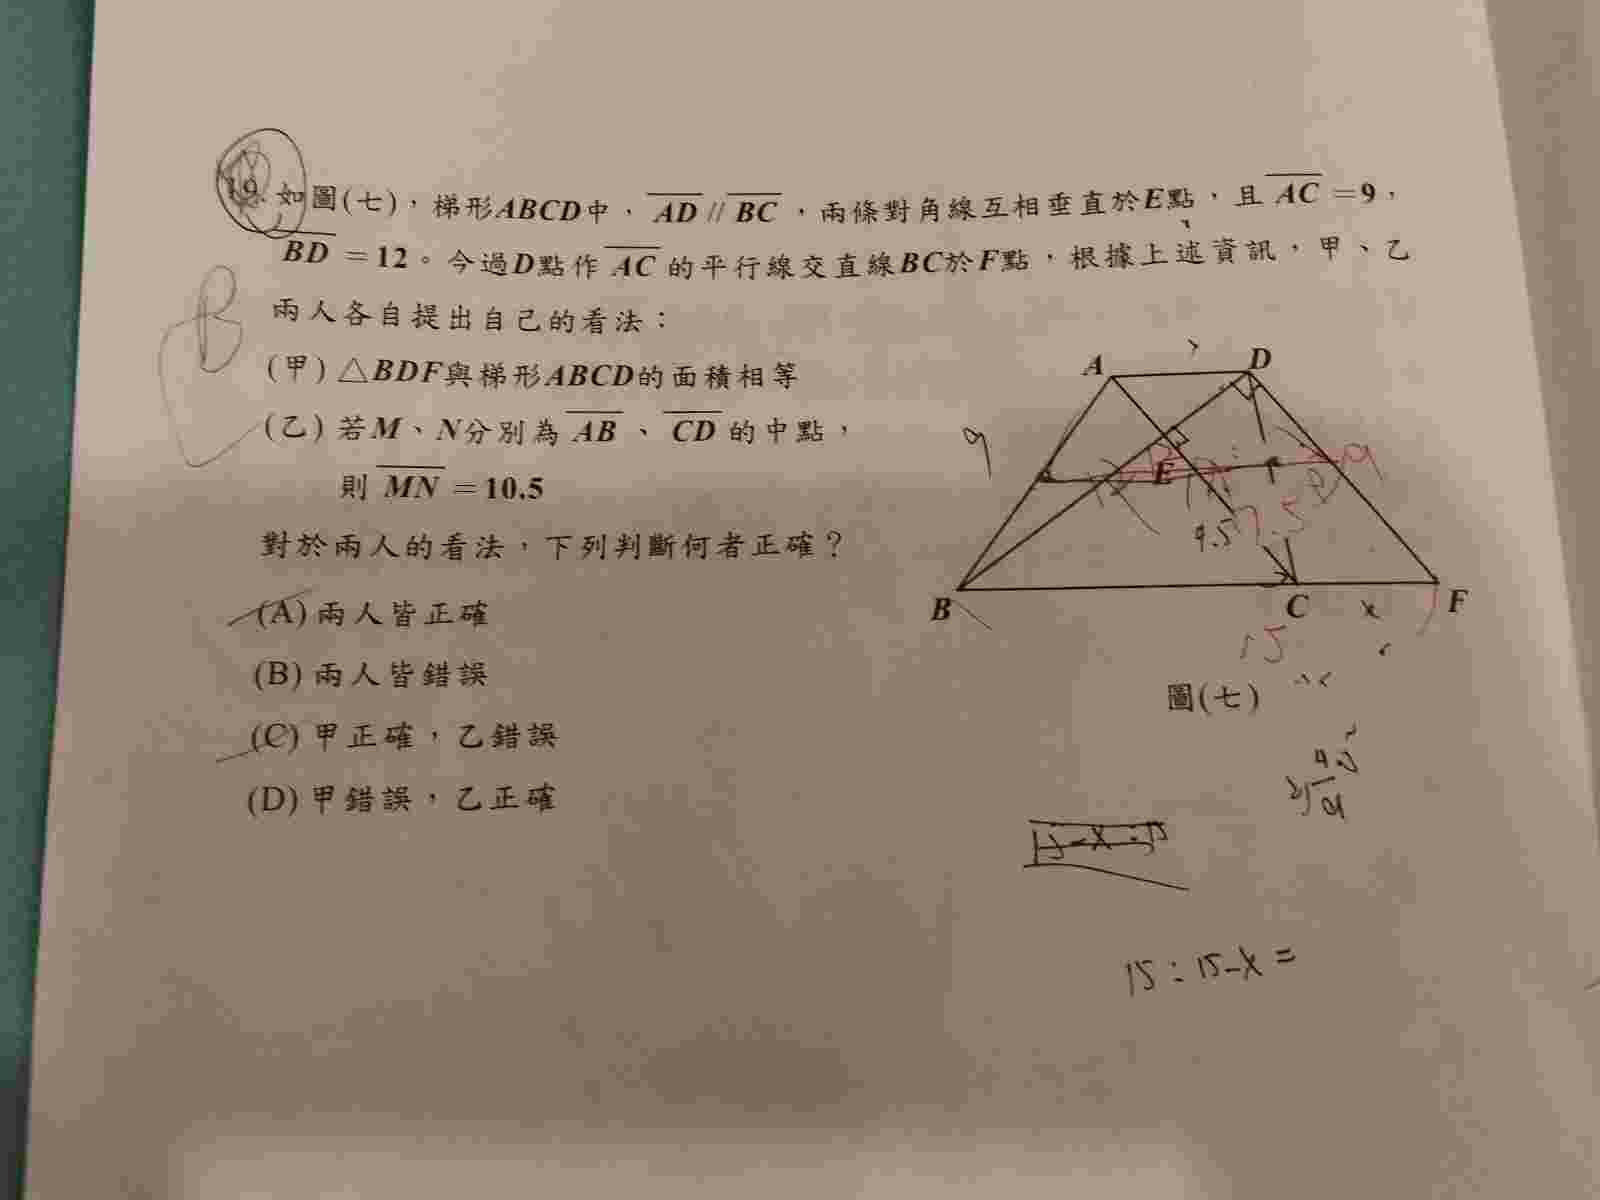 19. 如圖(七)，梯形ABCD中，AD // BC，兩條對角線互相垂直於E點，且AC =9，
BD =12。今過D點作AC的平行線交直線BC於F點，根據上述資訊，甲、乙
兩人各自提出自己的看法：
(甲) △BDF與梯形ABCD的面積相等
(乙) 若M、N分別為AB、CD的中點，
則MN =10.5
對於兩人的看法，下列判斷何者正確？
(A) 兩人皆正確
(B) 兩人皆錯誤
(C) 甲正確，乙錯誤
(D) 甲錯誤，乙正確
B
A D
9 E 9
4.5 7.5
B C x F
15
圖(七)
15 : 15-x =